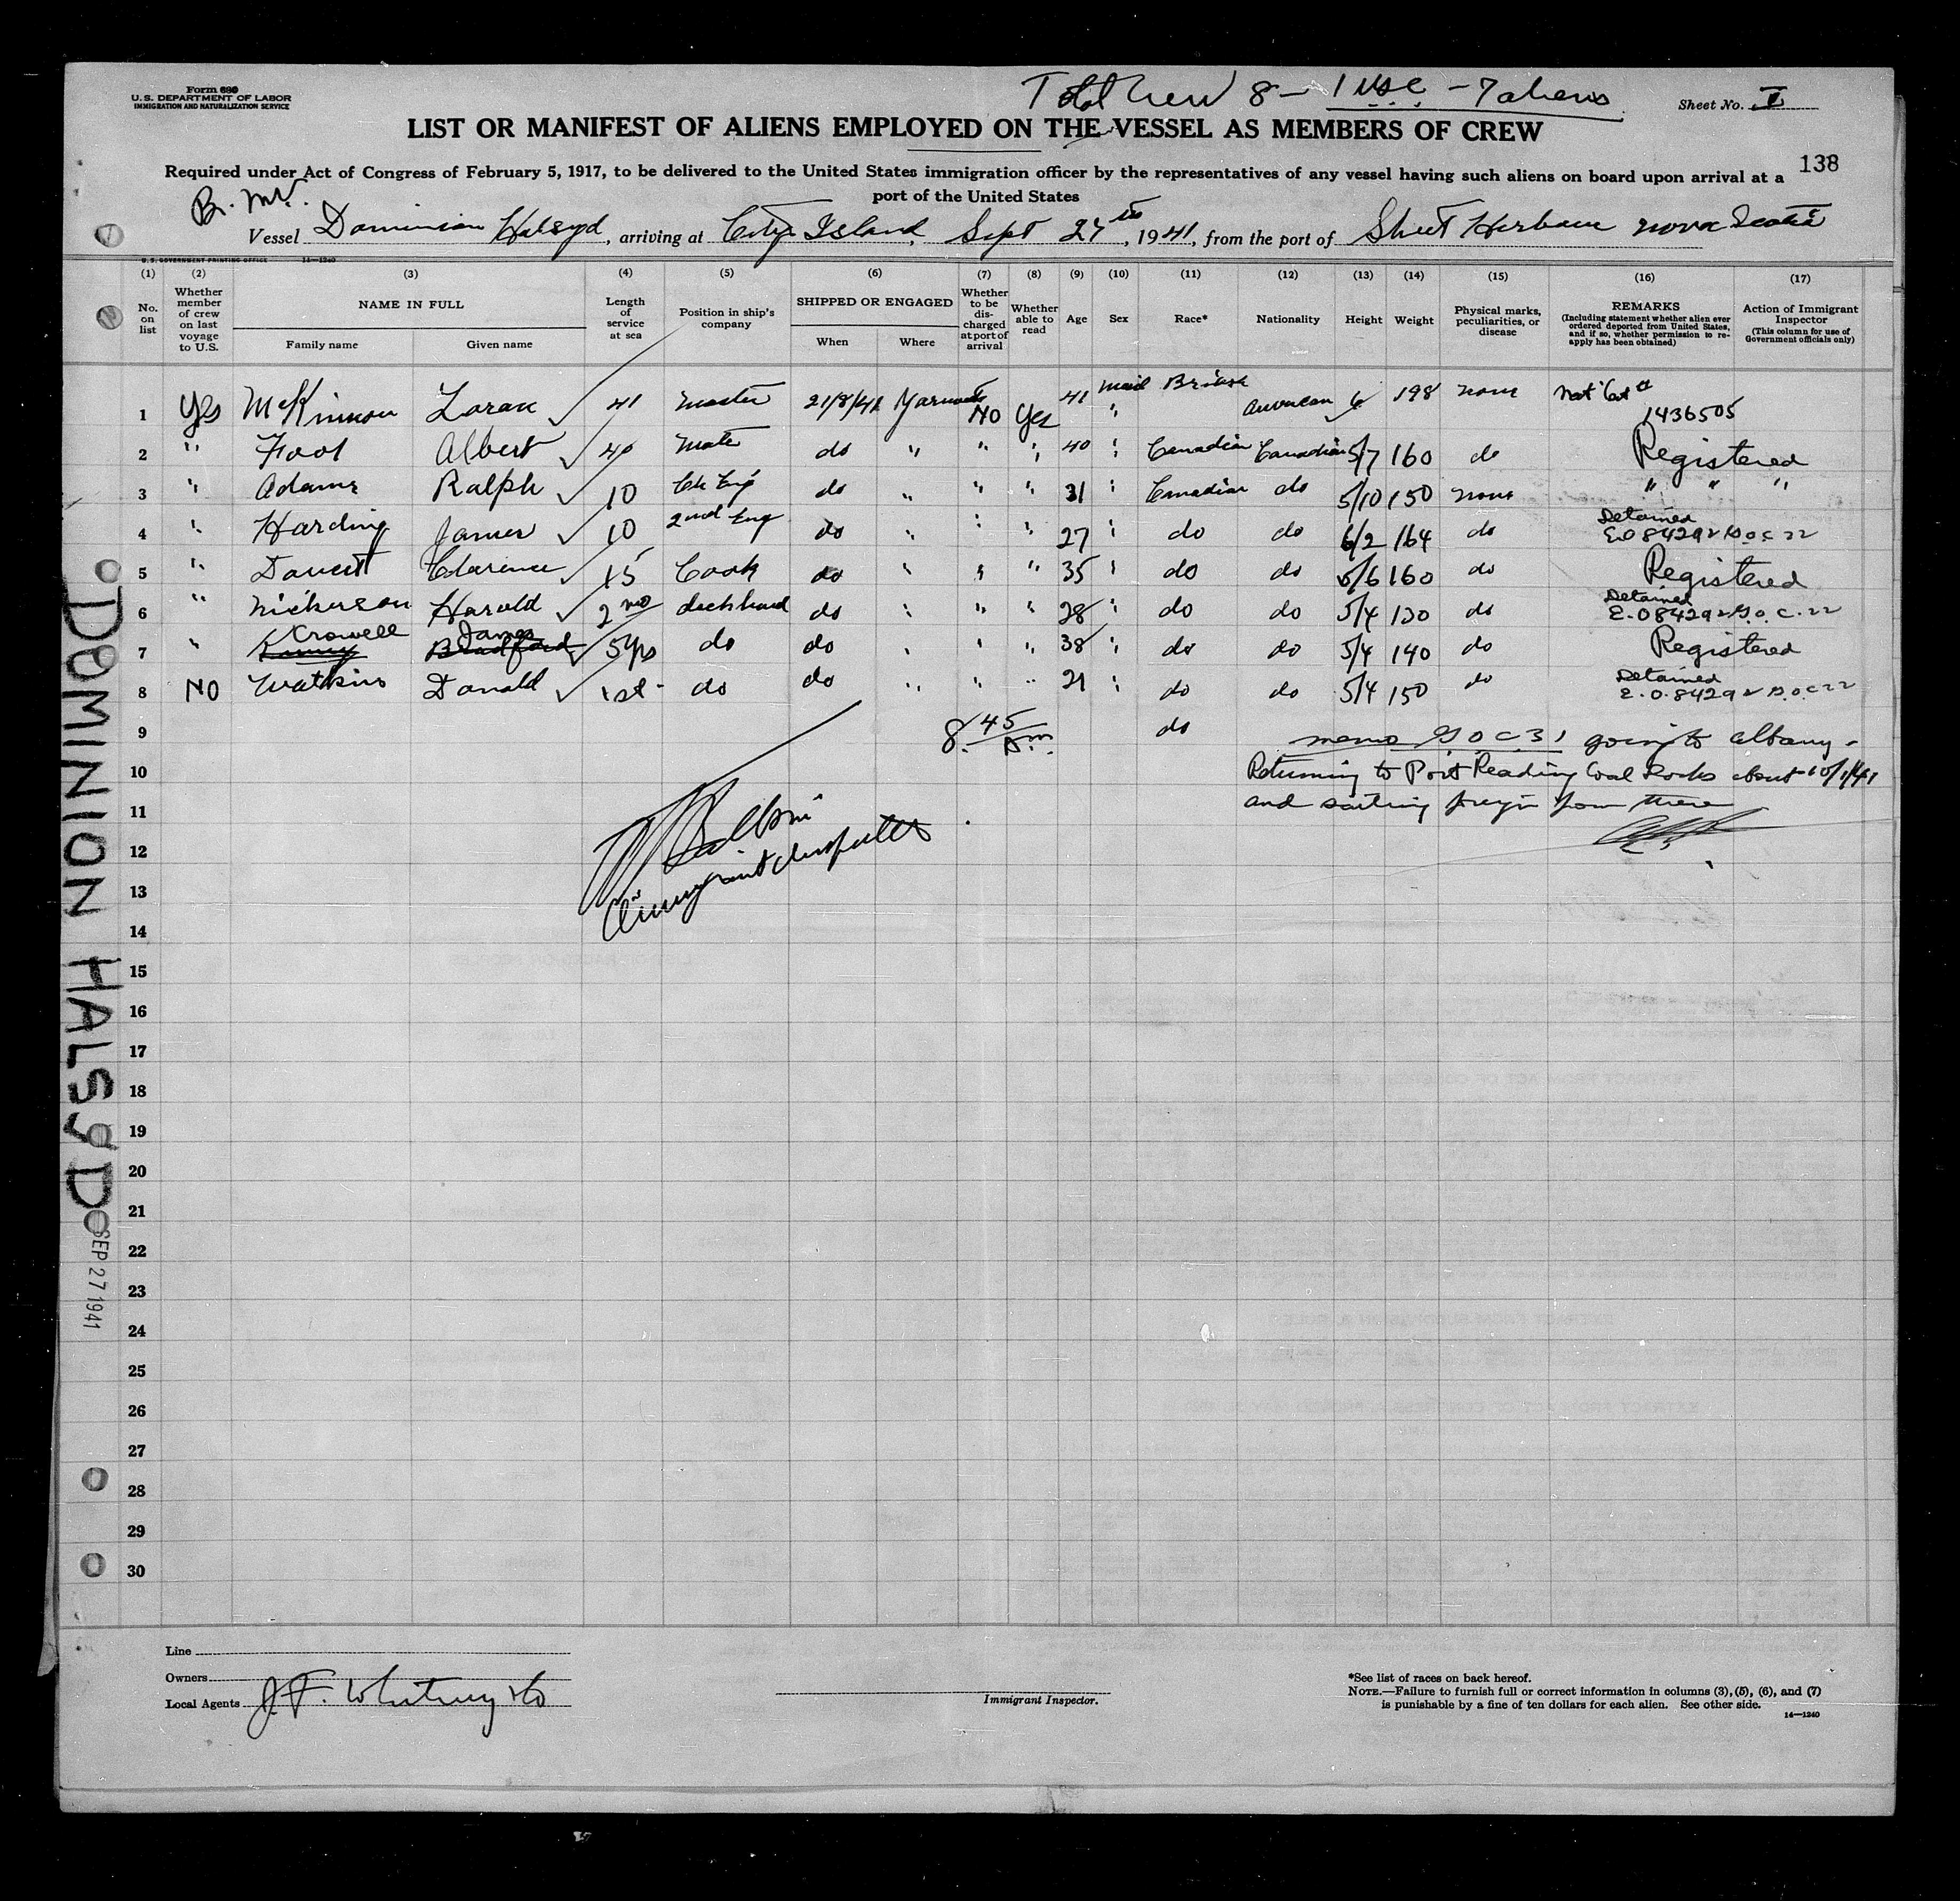 Form 680
U.S. DEPARTMENT OF LABOR
IMMIGRATION AND NATURALIZATION SERVICE
Total Crew 8 – 1 USC – 7 aliens
Sheet No. I
LIST OR MANIFEST OF ALIENS EMPLOYED ON THE VESSEL AS MEMBERS OF CREW
138
Required under Act of Congress of February 5, 1917, to be delivered to the United States immigration officer by the representatives of any vessel having such aliens on board upon arrival at a
port of the United States
Br. M.V.
Vessel Dominion Halsyd, arriving at City Island, Sept 27th, 1941, from the port of Sheet Harbour Nova Scotia
U.S. GOVERNMENT PRINTING OFFICE 14—1240
(1) (2) (3) (4) (5) (6) (7) (8) (9) (10) (11) (12) (13) (14) (15) (16) (17)
No. on list
Whether member of crew on last voyage to U.S.
NAME IN FULL
Family name
Given name
Length of service at sea
Position in ship's company
SHIPPED OR ENGAGED
When
Where
Whether to be discharged at port of arrival
Whether able to read
Age
Sex
Race*
Nationality
Height
Weight
Physical marks, peculiarities, or disease
REMARKS
(Including statement whether alien ever ordered deported from United States, and if so, whether permission to re-apply has been obtained)
Action of Immigrant Inspector
(This column for use of Government officials only)
1 Yes McKinnon Loran 41 Master 21/8/41 Yarmouth No Yes 41 Male British American 6 198 none Nat Cert # 1436505
2 " Foot Albert 40 Mate do " " " 40 " Canadian Canadian 5/7 160 do Registered
3 " Adams Ralph 10 Ch Eng do " " " 31 " Canadian do 5/10 150 none " " "
4 " Harding James 10 2nd Eng do " " " 27 " do do 6/2 164 do Detained E.O 8429 & G.O.C 22
5 " Clarence 15 Cook do " " " 35 " do do 5/6 160 do Registered
6 " Nickerson Harold 2 mo deckhand do " " " 28 " do do 5/4 130 do Detained E.O 8429 & G.O.C. 22
7 " Kinney Crowell Bradford James 5 yrs do do " " " 38 " do do 5/4 140 do Registered
8 No Watkins Donald 1st do do " " " 21 " do do 5/4 150 do Detained E.O. 8429 & G.O.C 22
9 8.45 Am do memo G O C 31 going to Albany –
10 Returning to Port Reading Coal Docks about 10/1/41
11 and sailing foreign from there
12
Immigrant Inspector
13
14
15
16
17
18
19
20
21
22
23
24
25
26
27
28
29
30
DOMINION HALSYD
SEP 27 1941
Line
Owners
Local Agents J.F. Whitney & Co
Immigrant Inspector.
*See list of races on back hereof.
NOTE.—Failure to furnish full or correct information in columns (3), (5), (6), and (7)
is punishable by a fine of ten dollars for each alien. See other side.
14—1240